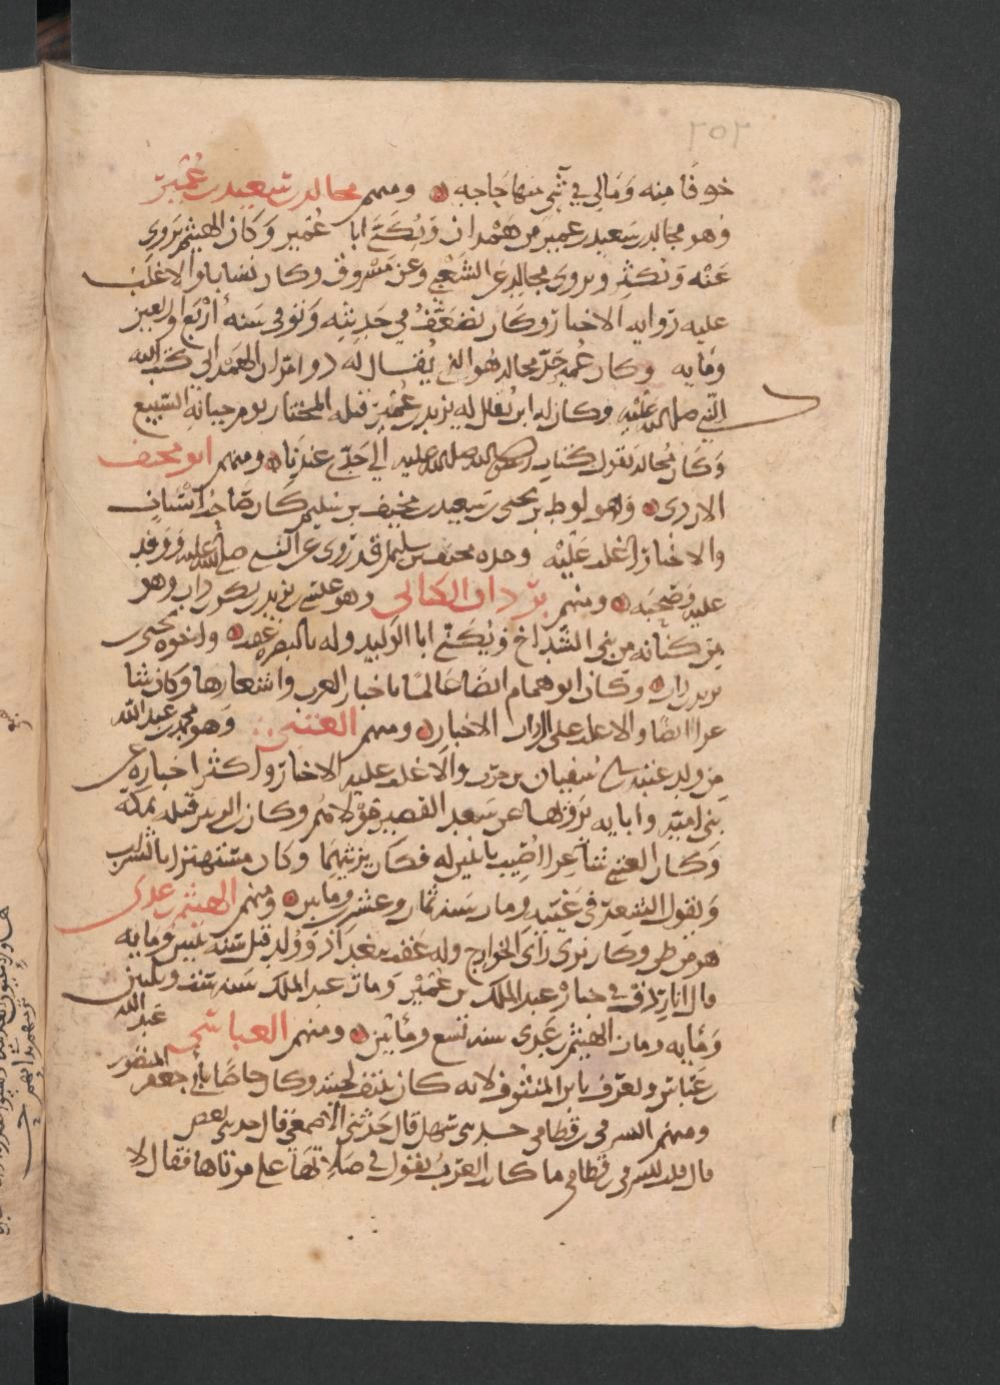 ٢٥٢
خوفا منه وَمَالي في شي منها حَاجه ومنهم مجالد بن سَعِيد بن عُمَير
وهو مجالد بن سَعيد بن عمير من هَمْدان وَيُكَنّى ابا عُمَير وَكَان الهيثم يَروي
عَنْه وَيُكثِر ويروى مجالد عن الشَعْبي وعن مَسْروق وكان نسّابا والاغلَب
عليه رَوايه الاخبار وكَان يُضَعَّفُ في حَدِيثِه وَتوفي سَنه أرْبَع واربعين
ومايه وكان عُمير جَدّ مجالد هُو الذي يُقال له ذو امرّان الهَمْداني كتب اليه
النّبي صلى الله عَلَيْه وكان له ابن يُقال له يزيد بن عُمَير قتله المختار يوم جبانه السَّبيع
وَكَان مُجالد يَقول كتاب رسول الله صلى الله عليه الي جَدّي عندَنا ومنهم ابو مخنف
الازدي وَهو لوط بن يحيى بن سَعِيد بن مخنِف بن سُليم كَان صَاحب انْسَاب
والاخبَار اغلب عَلَيْه وجده مخنف بن سليم قد رَوى عن النّبي صلى الله عليه وَوفد
عليه وَصَحِبَه ومنهم بن داب الكناني وهو عيسى بن يزيد بن بكر بن داب وهو
مِن كنَانه من بَني الشدّاخ وَيُكَنّى ابا الوَليد وله بالبصره عقب واخوه يحيى
بن يزيد وكَان ابوهما ايضًا عَالمًا باخبار العرب واشعارها وَكَان شا
عرا ايضًا والاغلب على ال داب الاخبار ومنهم العُتبي وَهو محمد بن عبد الله
مِن ولد عتبه بن ابي سُفيان بن حَرب والاغلب عليه الاخبار واكثر اخباره عن
بَني اميّه وابايه يَرويها عن سَعد القصير مَوْلاهم وكان ابن الزبير قتله بمكّه
وَكَان العتبي شاعرا اُصِيب ببنين له فكان يرثيهمَا وكان مستهتزا بالشراب
وَيقول الشعر في عَتبه ومات سَنه ثمان وعشرين ومايتين ومنهم الهيثم بن عدي
هو من طي وكان يرى رَاي الخوارج وله عَقب ببغداذ وَوُلِد قبل سَنَه ثلثين ومايه
قال انا رزق في جنازه عبد الملك بن عُمَير وَمات عبد الملك سَنه ست وثلثين
وَمايه ومات الهيثم بن عَدِي سنه تسع ومايتين ومنهم العباسي عبد الله
بن عَيّاش ويعرَف بابن المَنْتوف لانه كان ينتف لِحيَته وكان خاصًا بأبي جعفر المنصور
ومنهم الشرقي بن قطامي حَدثني سَهل قال حَدّثني الأصمعي قال حدثني بعض
قال قلت للشرقي بن قطامي ما كانَت العَرَبُ تقول في صَلاتهَا على موتاها فقال لا